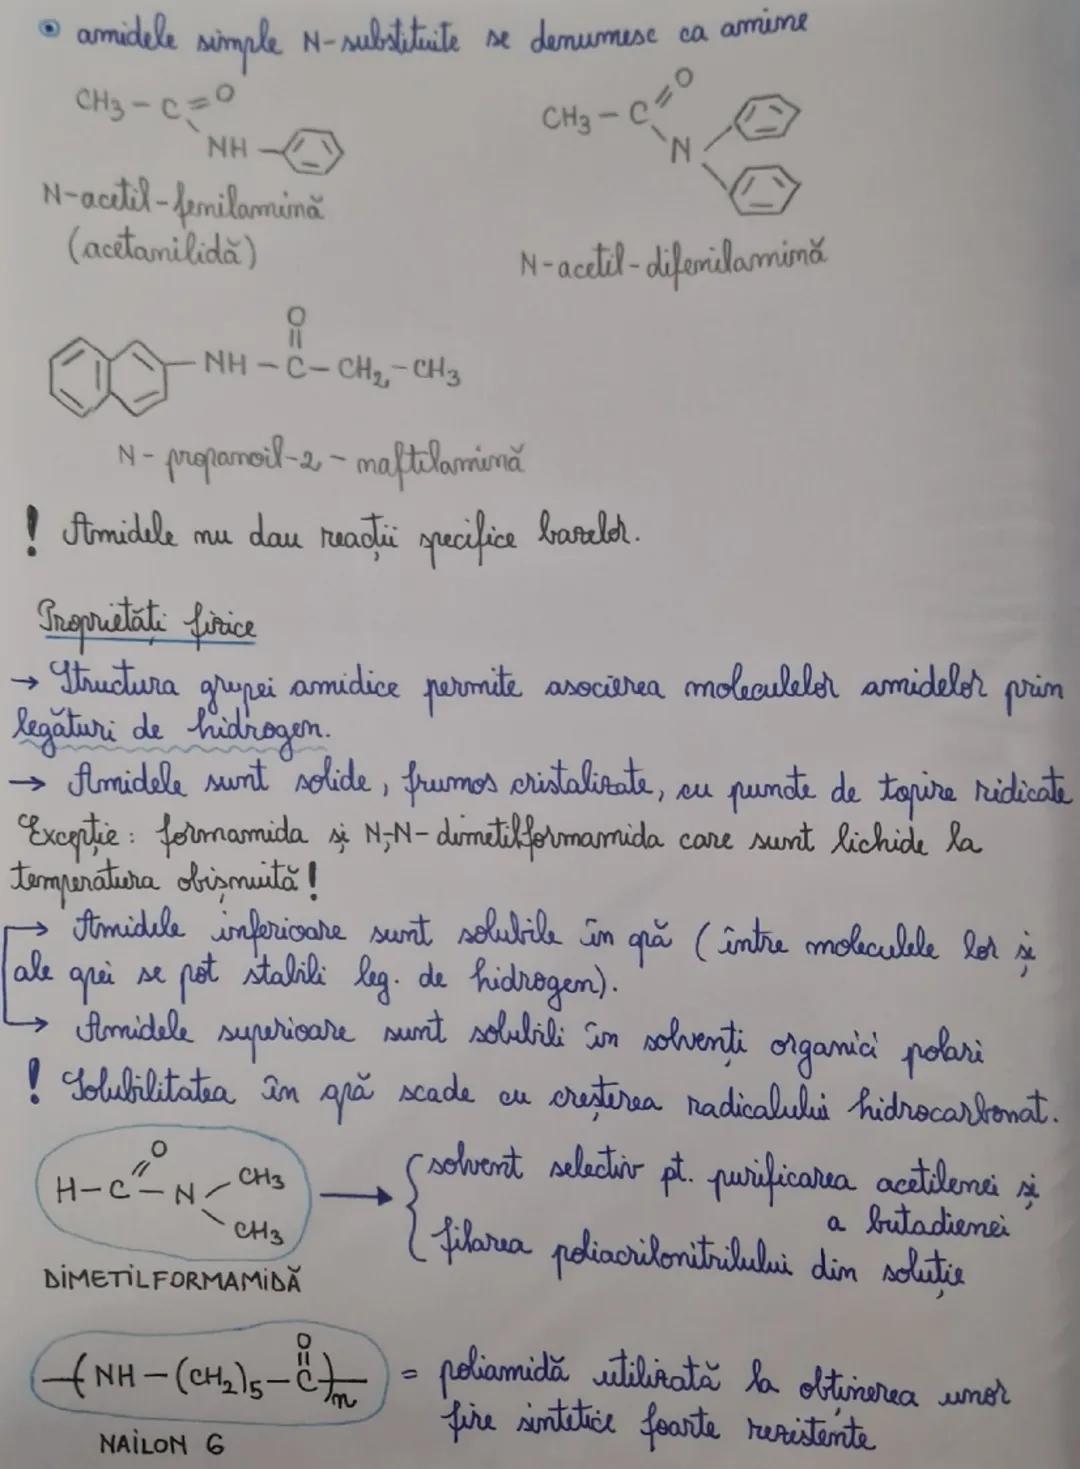 amidele simple N-substituite se denumesc ca amine
CH3 - C = O
NH
N-acetil-fenilamină
(acetanilidă)
CH3 - C = O
N
N-acetil-difenilamină
O
NH - C - CH2 - CH3
N-propanoil-2-naftilamină
! Amidele nu dau reacții specifice bazelor.
Proprietăți fizice
→ Structura grupei amidice permite asocierea moleculelor amidelor prin
legături de hidrogen.
→ Amidele sunt solide, frumos cristalizate, cu puncte de topire ridicate
Excepție: formamida și N,N-dimetilformamida care sunt lichide la
temperatura obișnuită!
→ Amidele inferioare sunt solubile în apă (între moleculele lor și
ale apei se pot stabili leg. de hidrogen).
→ Amidele superioare sunt solubili în solvenți organici polari
! Solubilitatea în apă scade cu creșterea radicalului hidrocarbonat.
O
H-C-N
CH3
CH3
DIMETILFORMAMIDĂ
→ { solvent selectiv pt. purificarea acetilenei și
a butadienei
filarea poliacrilonitrilului din soluție
O
(NH-(CH2)5-C)n
NAILON 6
= poliamidă utilizată la obținerea unor
fire sintetice foarte rezistente